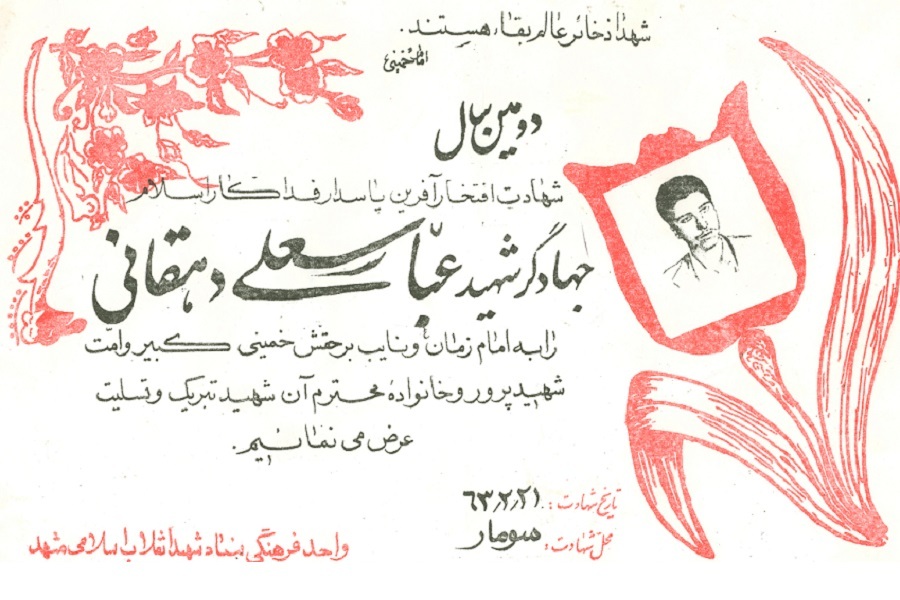 شهدا ذخائر عالم بقاء هستند.
امام خمینی
دومین سال
شهادت افتخارآفرین پاسدار فداکار اسلام
جهادگر شهید عباسعلی دهقانی
را به امام زمان و نایب برحقش خمینی کبیر و امت
شهید پرور و خانواده محترم آن شهید تبریک و تسلیت
عرض می نمائیم.
تاریخ شهادت: ۶۳/۲/۲۱
محل شهادت: سومار
واحد فرهنگی بنیاد شهید انقلاب اسلامی مشهد